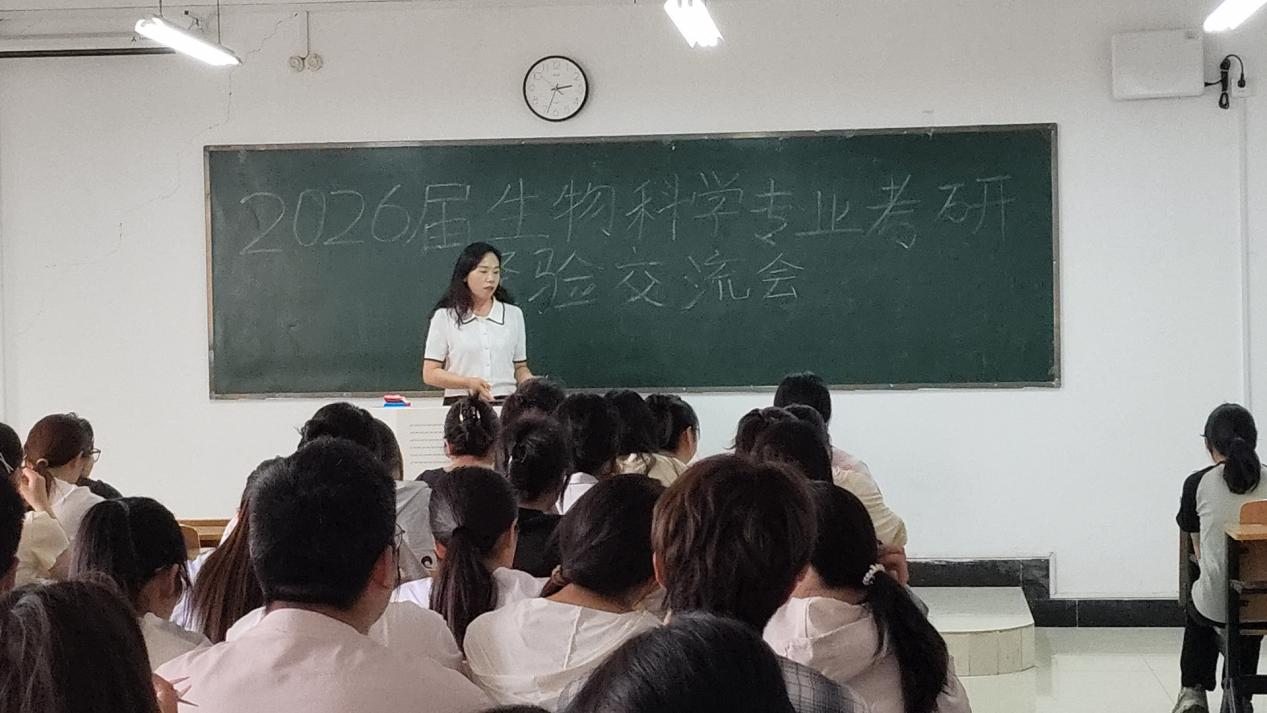 2026届生物科学专业考研
经验交流会